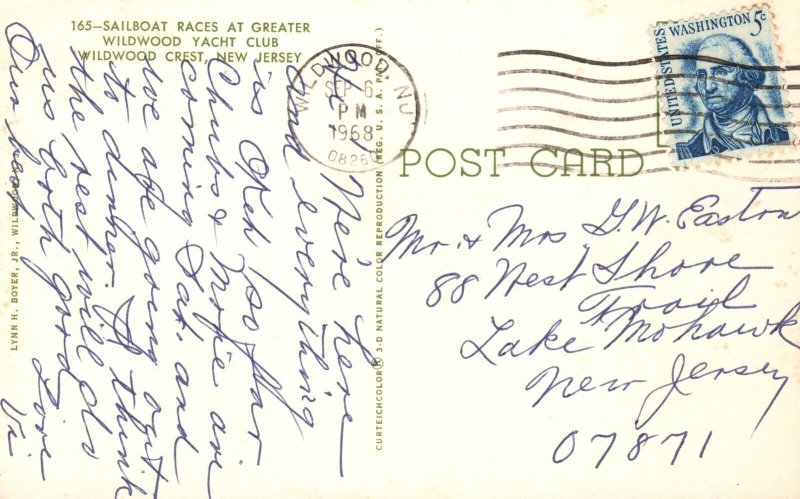 165—SAILBOAT RACES AT GREATER
WILDWOOD YACHT CLUB
WILDWOOD CREST, NEW JERSEY
WILDWOOD NJ
SEP 6
PM
1968
UNITED STATES
WASHINGTON 5c
POST CARD
Mr. + Mrs G.W. Easton
88 West Shore
Trail
Lake Mohawk
New Jersey
07871
Hi, We're here
and everything
is OK so far
Chubs + Marie are
coming Sat. and
we are going out
to dinner. I think
the rest will do
us both good
Love
Vi
LYNN H. BOYER, JR., WILDWOOD
CURTEICHCOLOR® 3-D NATURAL COLOR REPRODUCTION (REG. U.S.A. PAT. OFF.)